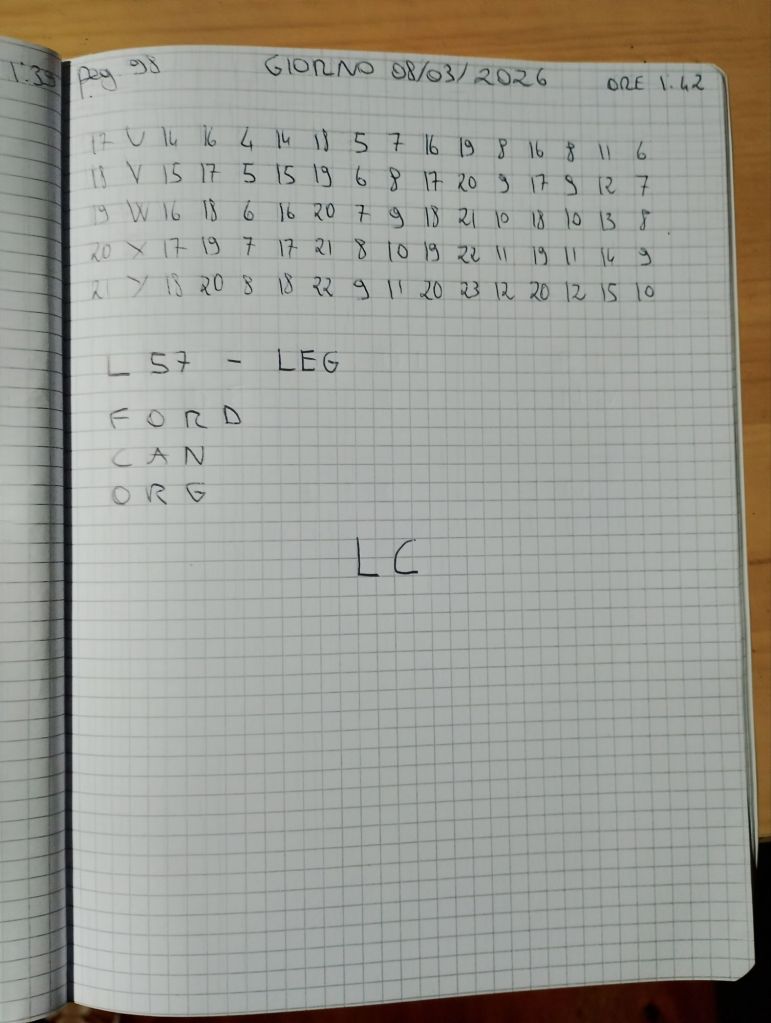 1:39
pag. 98 GIORNO 08/03/2026 ORE 1.42
17 U 14 16 4 14 18 5 7 16 19 8 16 8 11 6
18 V 15 17 5 15 19 6 8 17 20 9 17 9 12 7
19 W 16 18 6 16 20 7 9 18 21 10 18 10 13 8
20 X 17 19 7 17 21 8 10 19 22 11 19 11 14 9
21 Y 18 20 8 18 22 9 11 20 23 12 20 12 15 10
L 57 - LEG
F O R D
C A N
O R G
L C